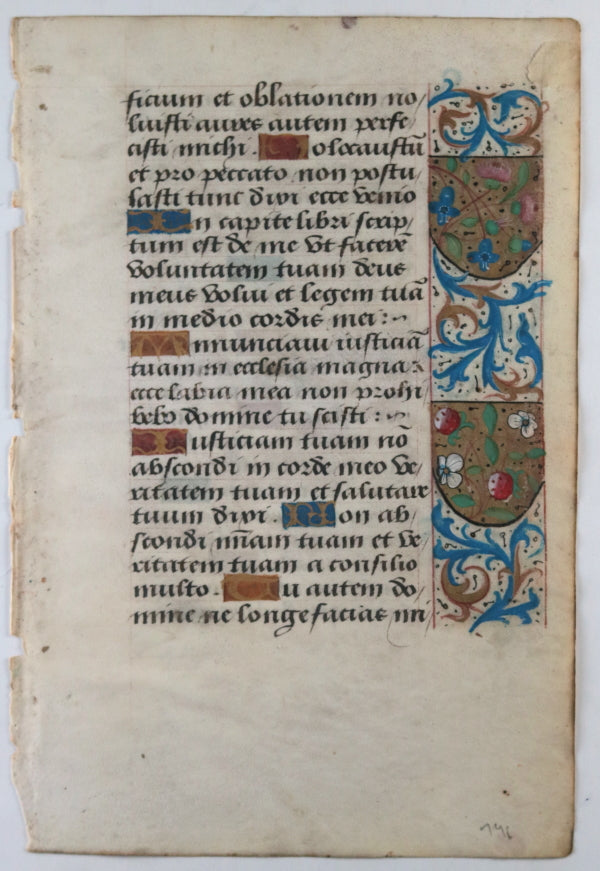 ficium et oblationem no/
luisti aures autem perfe/
cisti michi . Holocaustū
et pro peccato non postu/
lasti tunc dixi ecce venio
In capite libri scrip/
tum est de me vt facerē
voluntatem tuam deus
meus volui et legem tuā
in medio cordis mei :~
Annunciaui iusticiā
tuam in ecclesia magna
ecce labia mea non prohi/
bebo domine tu scisti :~
Iusticiam tuam nō
abscondi in corde meo ve/
ritatem tuam et salutare
tuum dixi . Non ab/
scondi mīam tuam et ve/
ritatem tuam a consilio
multo . Tu autem do/
mine ne longe facias mi